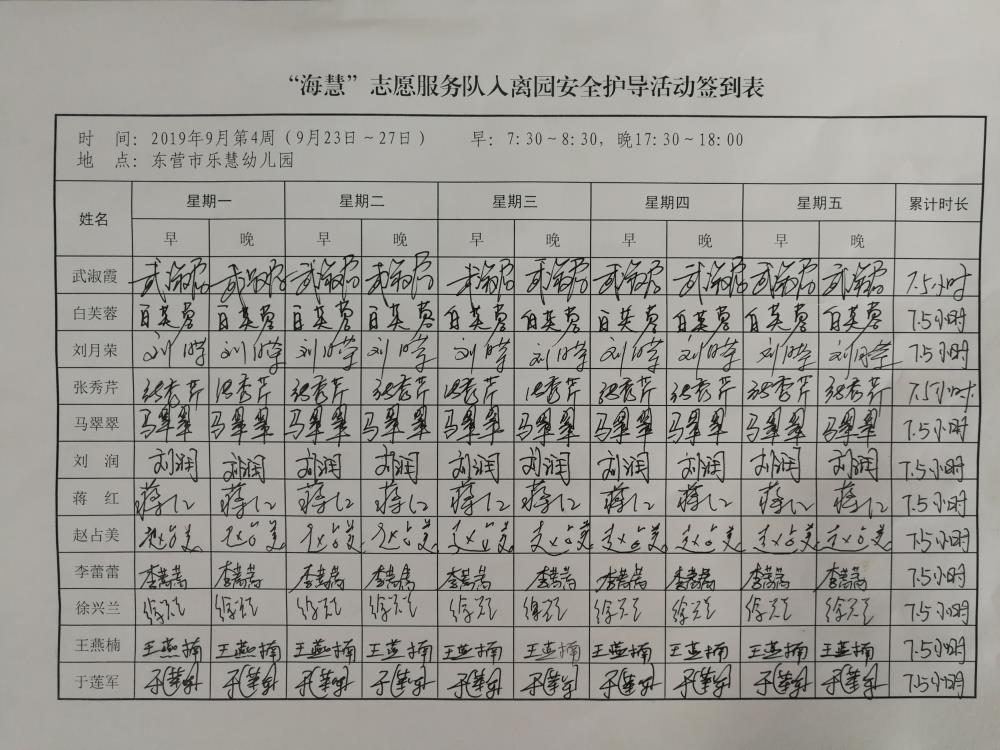 “海慧”志愿服务队入离园安全护导活动签到表
时 间：2019年9月第4周（9月23日～27日） 早：7:30～8:30，晚17:30～18:00
地 点：东营市乐慧幼儿园
姓名 星期一 星期二 星期三 星期四 星期五 累计时长
早 晚 早 晚 早 晚 早 晚 早 晚
武淑霞 武淑霞 武淑霞 武淑霞 武淑霞 武淑霞 武淑霞 武淑霞 武淑霞 武淑霞 武淑霞 7.5小时
白芙蓉 白芙蓉 白芙蓉 白芙蓉 白芙蓉 白芙蓉 白芙蓉 白芙蓉 白芙蓉 白芙蓉 白芙蓉 7.5小时
刘月荣 刘月荣 刘月荣 刘月荣 刘月荣 刘月荣 刘月荣 刘月荣 刘月荣 刘月荣 刘月荣 7.5小时
张秀芹 张秀芹 张秀芹 张秀芹 张秀芹 张秀芹 张秀芹 张秀芹 张秀芹 张秀芹 张秀芹 7.5小时
马翠翠 马翠翠 马翠翠 马翠翠 马翠翠 马翠翠 马翠翠 马翠翠 马翠翠 马翠翠 马翠翠 7.5小时
刘 润 刘润 刘润 刘润 刘润 刘润 刘润 刘润 刘润 刘润 刘润 7.5小时
蒋 红 蒋红 蒋红 蒋红 蒋红 蒋红 蒋红 蒋红 蒋红 蒋红 蒋红 7.5小时
赵占美 赵占美 赵占美 赵占美 赵占美 赵占美 赵占美 赵占美 赵占美 赵占美 赵占美 7.5小时
李蕾蕾 李蕾蕾 李蕾蕾 李蕾蕾 李蕾蕾 李蕾蕾 李蕾蕾 李蕾蕾 李蕾蕾 李蕾蕾 李蕾蕾 7.5小时
徐兴兰 徐兴兰 徐兴兰 徐兴兰 徐兴兰 徐兴兰 徐兴兰 徐兴兰 徐兴兰 徐兴兰 徐兴兰 7.5小时
王燕楠 王燕楠 王燕楠 王燕楠 王燕楠 王燕楠 王燕楠 王燕楠 王燕楠 王燕楠 王燕楠 7.5小时
于莲军 于莲军 于莲军 于莲军 于莲军 于莲军 于莲军 于莲军 于莲军 于莲军 于莲军 7.5小时